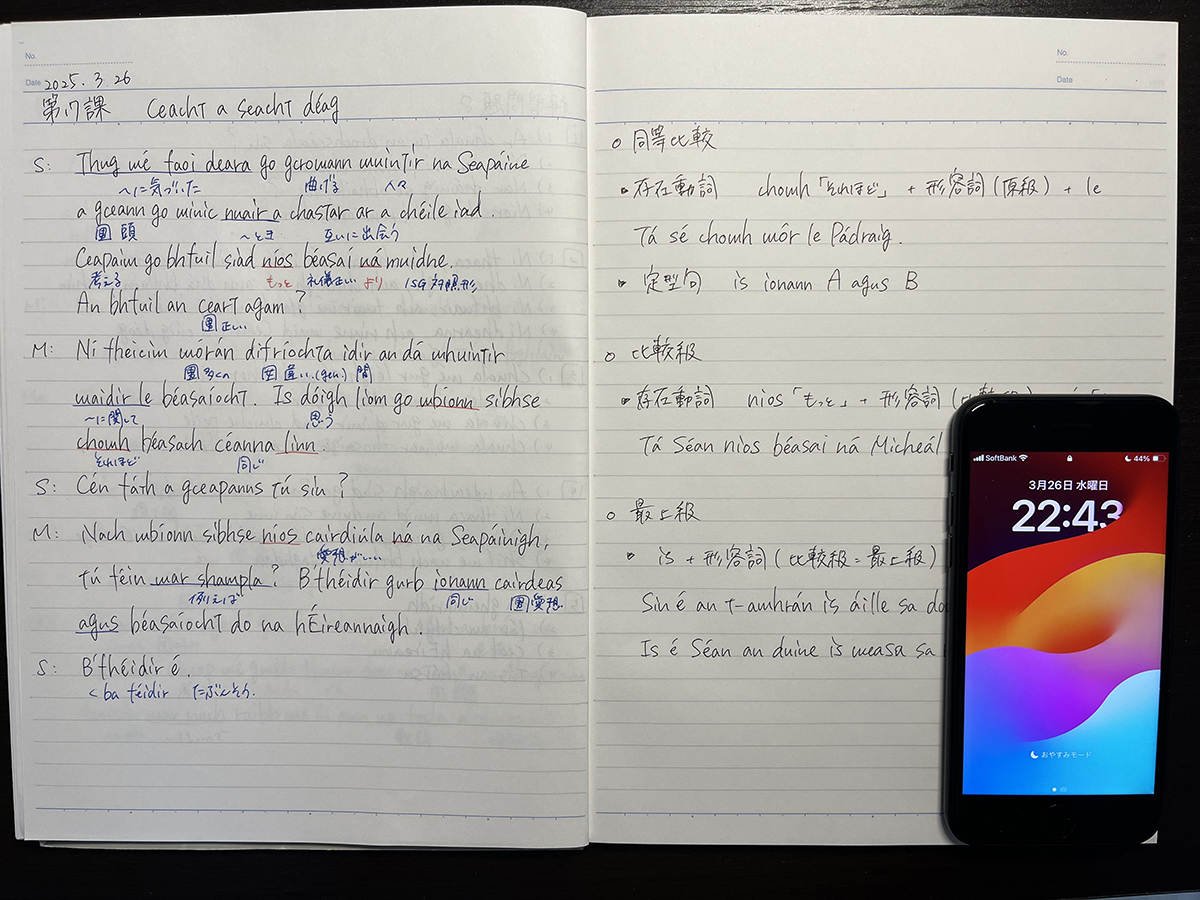 No.
Date 2025.3.26
第17課 Ceacht a seacht déag
S: Thug mé faoi deara go gcromann muintir na Seapáine
〜に気づいた 曲げる 人々
a gceann go minic nuair a chastar ar a chéile iad.
頭 〜とき 互いに出会う
Ceapaim go bhfuil siad níos béasaí ná muidne.
考える もっと 礼儀正しい より 1SG対照形
An bhfuil an ceart agam?
正しい
M: Ní fheicim mórán difríochta idir an dá mhuintir
多くの 違い(gen) 間
maidir le béasaíocht. Is dóigh liom go mbíonn sibhse
〜に関して 思う
chomh béasach céanna linn.
それほど 同じ
S: Cén fáth a gceapanns tú sin?
M: Nach mbíonn sibhse níos cairdiúla ná na Seapáinigh,
愛想がいい
tú féin mar shampla? B'fhéidir gurb ionann cairdeas
例えば 同じ 愛想
agus béasaíocht do na hÉireannaigh.
S: B'fhéidir é.
< ba féidir たぶんそう.
No.
Date
○ 同等比較
・存在動詞 chomh「それほど」+ 形容詞(原級) + le
Tá sé chomh mór le Pádraig.
・定型句 is ionann A agus B
○ 比較級
・存在動詞 níos「もっと」+ 形容詞
Tá Séan níos béasaí ná Micheál
○ 最上級
・is + 形容詞(比較級=最上級)
Sin é an t-amhrán is áille sa
Is é Séan an duine is measa sa
SoftBank 44%
3月26日 水曜日
22:43
おやすみモード